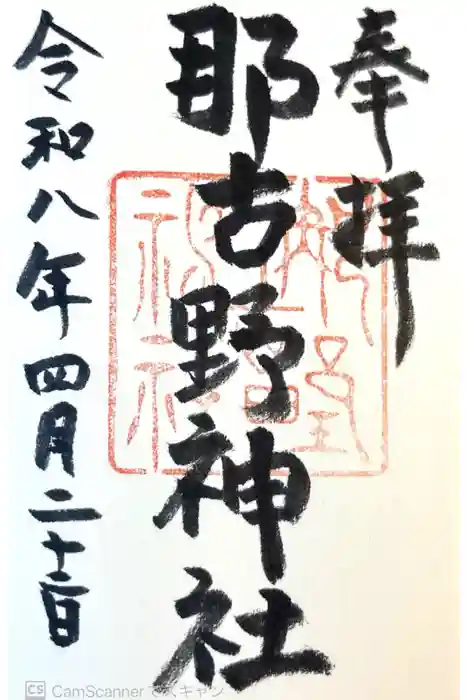 奉拝
那古野神社
令和八年四月二十二日
CS CamScannerでスキャン